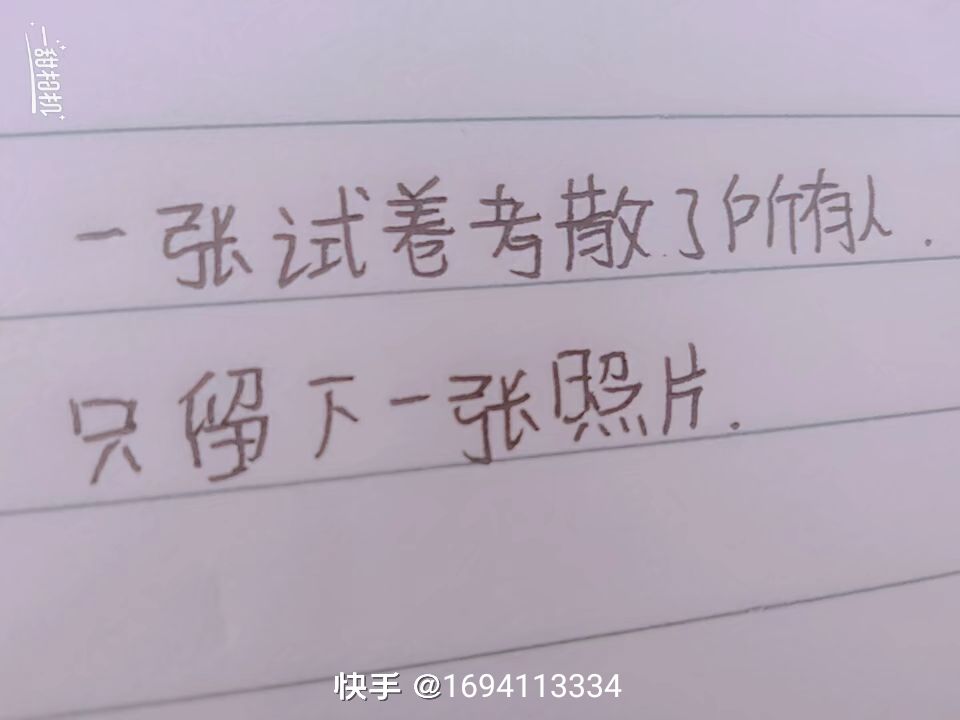 一甜相机
一张试卷考散了所有人.
只留下一张照片.
快手 @1694113334